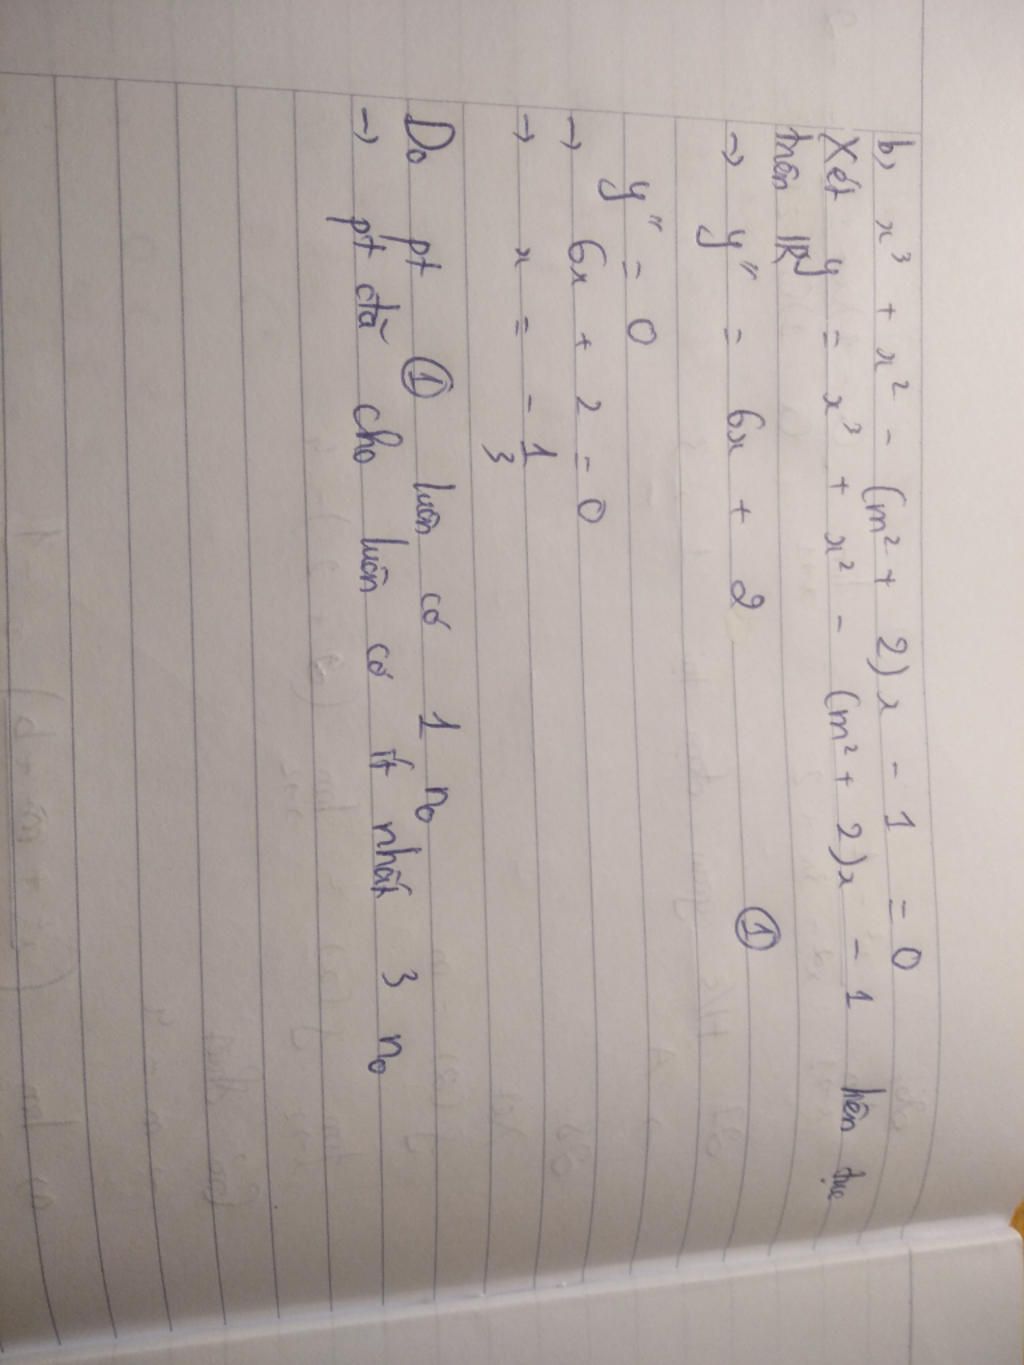 b) x³ + x² - (m² + 2)x - 1 = 0
Xét y = x³ + x² - (m² + 2)x - 1 liên tục
trên IR
→ y'' = 6x + 2 ①
y'' = 0
→ 6x + 2 = 0
→ x = -1/3
Do pt ① luôn có 1 n₀
→ pt đã cho luôn có ít nhất 3 n₀